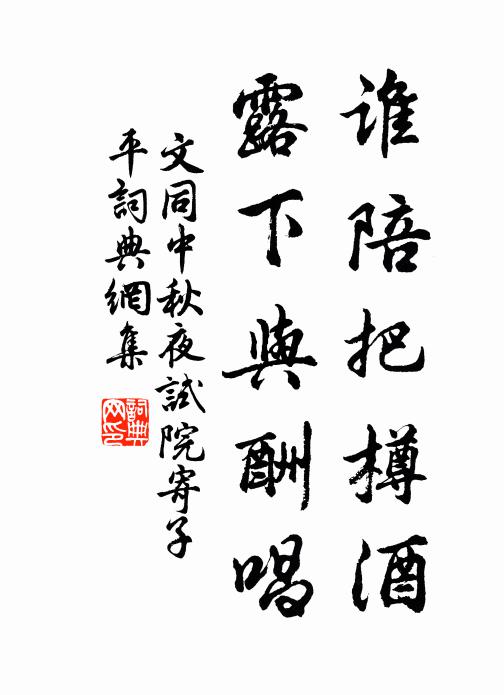 谁陪把樽酒
露下與酬唱
文同中秋夜試院寄子
平詞典網集
詞典
网印